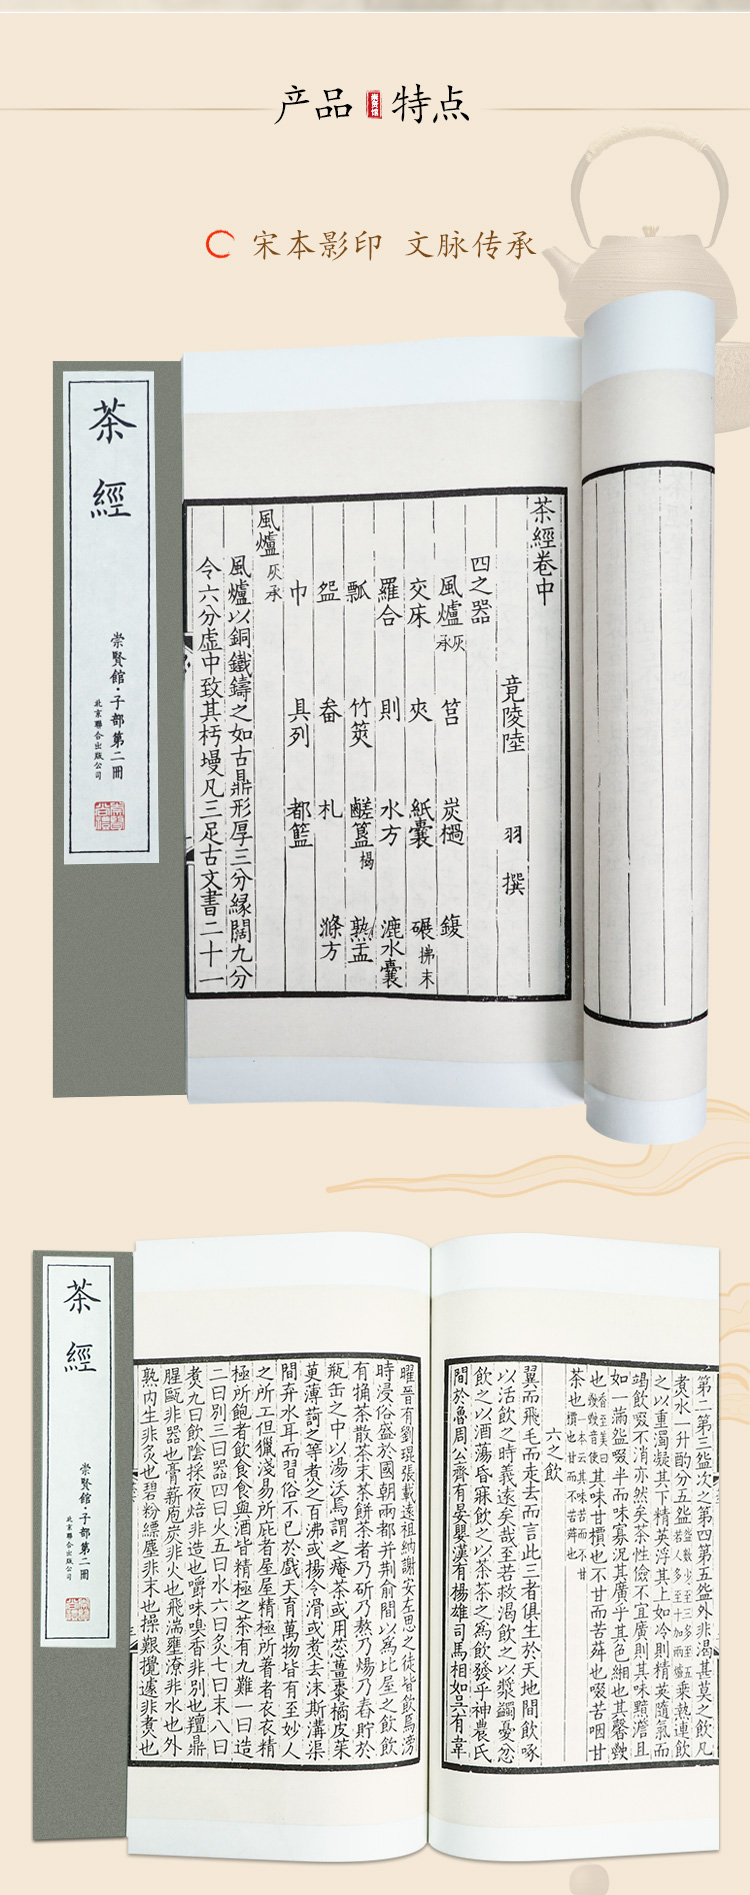 产品 特点
宋本影印 文脉传承
茶經
崇賢館·子部第二冊
北京聯合出版公司
茶經卷中
竟陵陸 羽 撰
四之器
風爐灰承 筥 炭檛 鍑
交床 夾 紙囊 碾拂末
羅合 則 水方 漉水囊
瓢 竹筴 鹺簋楬 熟盂
盌 畚 札 滌方
巾 具列 都籃
風爐灰承
風爐以銅鐵鑄之如古鼎形厚三分緣闊九分
令六分虛中致其杇墁凡三足古文書二十一
茶經
崇賢館·子部第二冊
北京聯合出版公司
第二第三盌次之第四第五盌外非渴甚莫之飲凡
煮水一升酌分五盌盌數少至三多至五若人多至十加兩爐乘熱連飲
之以重濁凝其下精英浮其上如冷則精英隨氣而
竭飲啜不消亦然矣茶性儉不宜廣則其味黯澹且
如一滿盌啜半而味寡況其廣乎其色緗也其馨𣣱
也香至美曰𣣱𣣱音使其味甘檟也不甘而苦荈也啜苦咽甘
茶也一本云其味苦而不甘檟也甘而不苦荈也
六之飲
翼而飛毛而走去而言此三者俱生於天地間飲啄
以活飲之時義遠矣哉至若救渴飲之以漿蠲憂忿
飲之以酒蕩昏寐飲之以茶茶之為飲發乎神農氏
間於魯周公齊有晏嬰漢有楊雄司馬相如吳有韋
曜晉有劉琨張載遠祖納謝安左思之徒皆飲焉滂
時浸俗盛於國朝兩都并荆俞間以為比屋之飲飲
有觕茶散茶末茶餅茶者乃斫乃熬乃煬乃舂貯於
瓶缶之中以湯沃焉謂之痷茶或用葱薑棗橘皮茱
萸薄荷之等煮之百沸或揚令滑或煮去沫斯溝渠
間弃水耳而習俗不已於戲天育萬物皆有至妙人
之所工但獵淺易所庇者屋屋精極所著者衣衣精
極所飽者飲食食與酒皆精極之茶有九難一曰造
二曰別三曰器四曰火五曰水六曰炙七曰末八曰
煮九曰飲陰採夜焙非造也嚼味嗅香非別也羶鼎
腥甌非器也膏薪庖炭非火也飛湍壅潦非水也外
熟内生非炙也碧粉縹塵非末也操艱攪遽非煮也